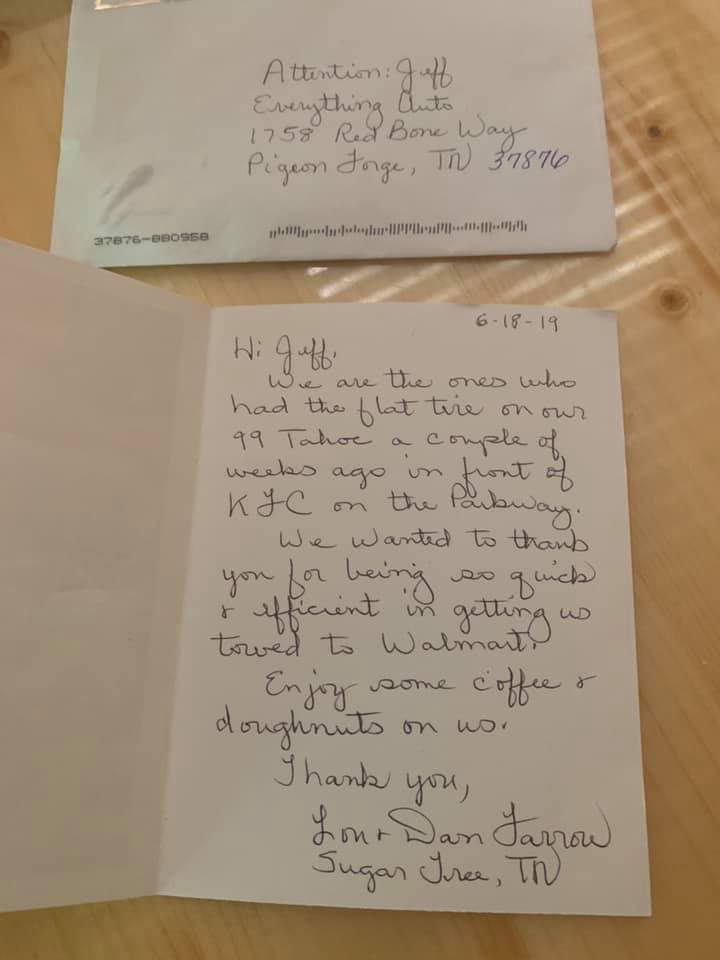 Attention: Jeff
Everything Auto
1758 Red Bone Way
Pigeon Forge, TN 37876
37876-880958
6-18-19
Hi Jeff,
We are the ones who
had the flat tire on our
99 Tahoe a couple of
weeks ago in front of
KFC on the Parkway.
We wanted to thank
you for being so quick
& efficient in getting us
towed to Walmart.
Enjoy some coffee &
doughnuts on us.
Thank you,
Lon & Dan Farrow
Sugar Tree, TN